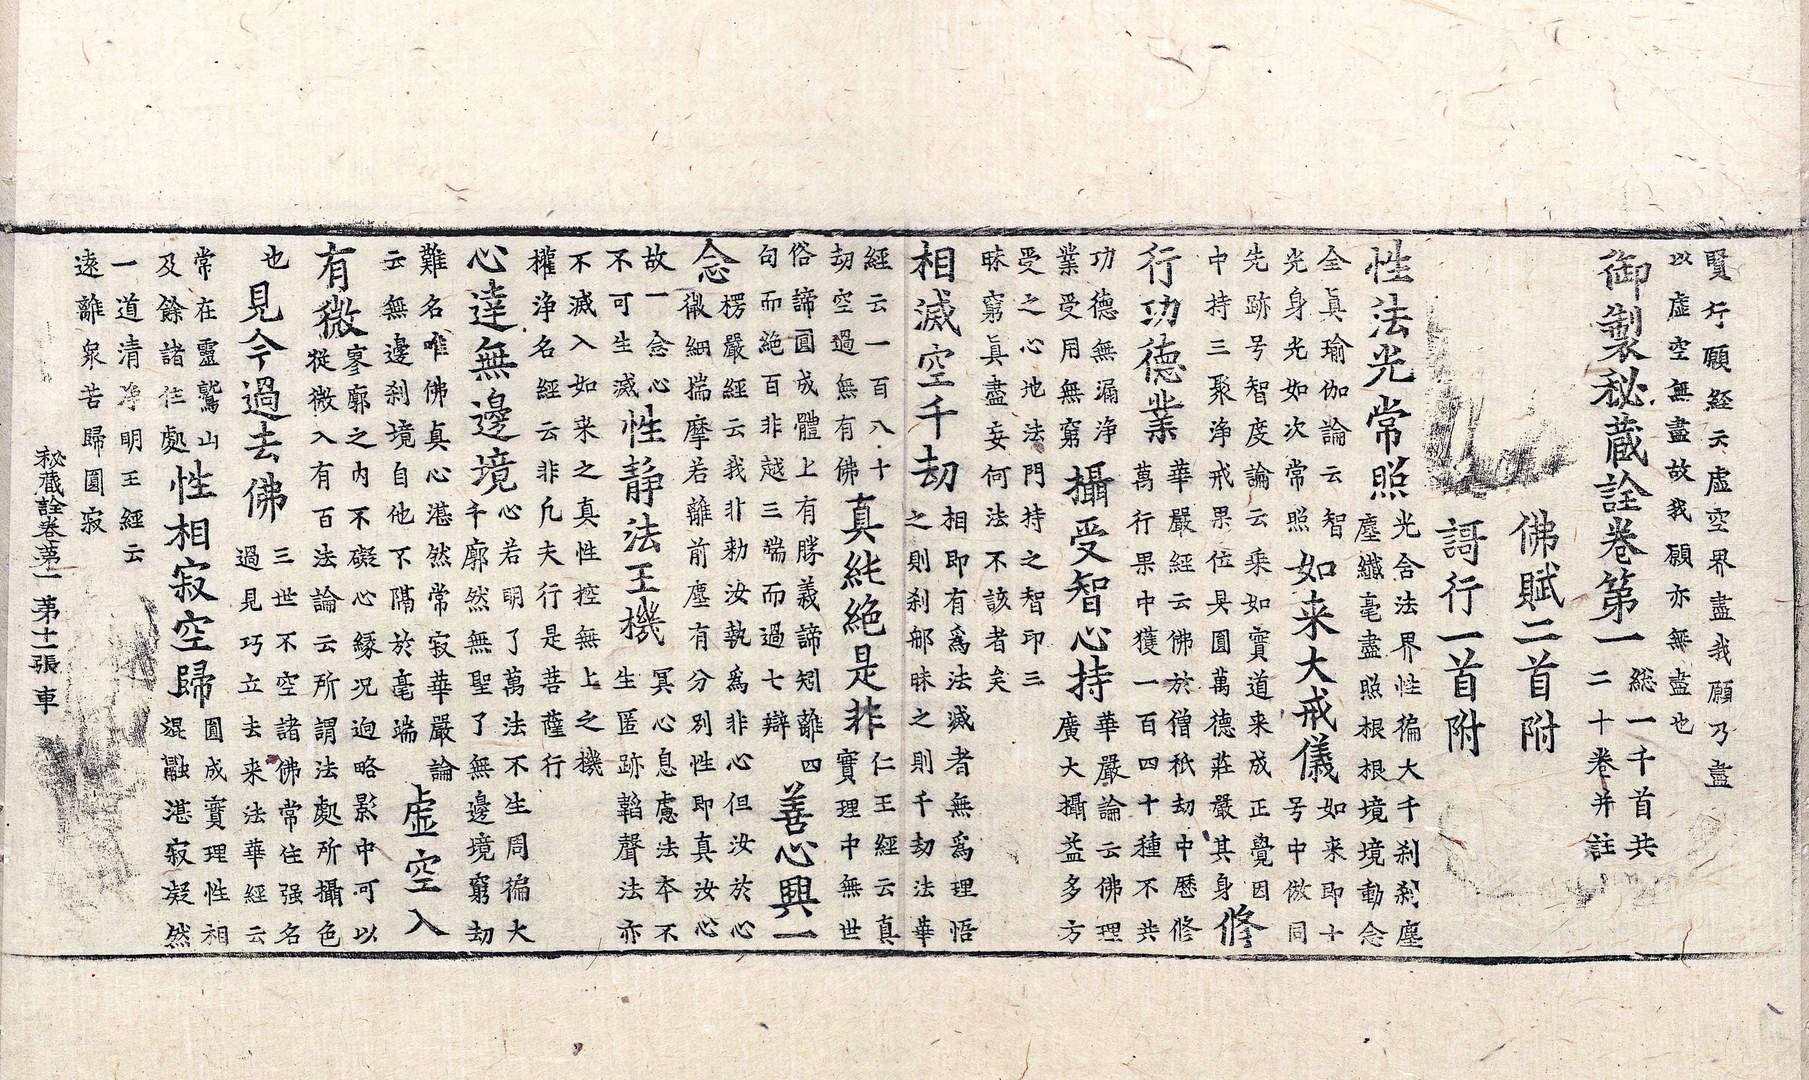 賢行願經云虛空界盡我願乃盡
以虛空無盡故我願亦無盡也
御製秘藏詮卷第一
総一千首共
二十卷并註
佛賦二首附
謌行一首附
性法光常照
光含法界性徧大千刹刹塵
塵纖毫盡照根根境境動念
全眞瑜伽論云智
光身光如次常照
如来大戒儀
如来即十
号中倣同
先跡号智度論云乗如實道来成正覺因
中持三聚浄戒果位具圓萬德莊嚴其身
修
行功德業
華嚴經云佛於僧祇劫中歴修
萬行果中獲一百四十種不共
功德無漏浄
業受用無窮
攝受智心持
華嚴論云佛理
廣大攝益多方
受之心地法門持之智印三
昧窮眞盡妄何法不該者矣
相滅空千劫
相即有為法滅者無為理悟
之則刹那昧之則千劫法華
經云一百八十
劫空過無有佛
真純絶是非
仁王經云真
實理中無世
俗諦圓成體上有勝義諦矧離四
句而絶百非越三端而過七辯
善心興一
念
楞嚴經云我非勅汝執為非心但汝於心
微細揣摩若離前塵有分別性即真汝心
故一念心
不可生滅
性静法王機
冥心息慮法本不
生匿跡韜聲法亦
不滅入如来之真性控無上之機
權浄名經云非凡夫行是菩薩行
心達無邊境
心若明了萬法不生周徧大
千廓然無聖了無邊境窮劫
難名唯佛真心湛然常寂華嚴論
云無邊刹境自他不隔於毫端
虚空入
有微
寥廓之内不礙心縁况迥略影中可以
從微入有百法論云所謂法處所攝色
也
見今過去佛
三世不空諸佛常住强名
過見巧立去来法華經云
常在靈鷲山
及餘諸住處
性相寂空歸
圓成實理性相
混融湛寂凝然
一道清净明王經云
遠離衆苦歸圓寂
秘藏詮卷第一 第十一張 車